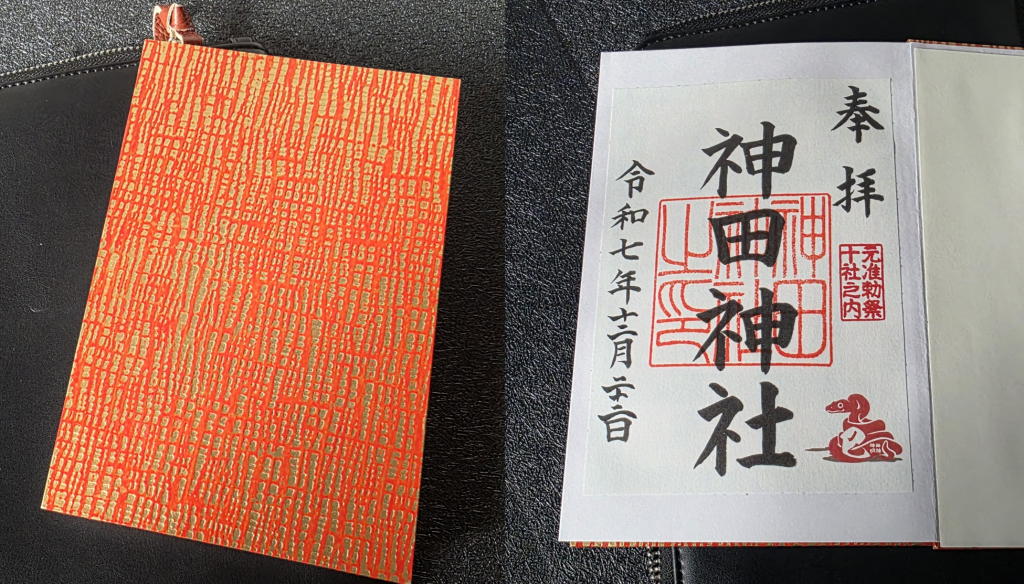 奉拝
元准勅祭
十社之内
神田神社
神田
神社
之印
令和七年十二月二十二日
巳